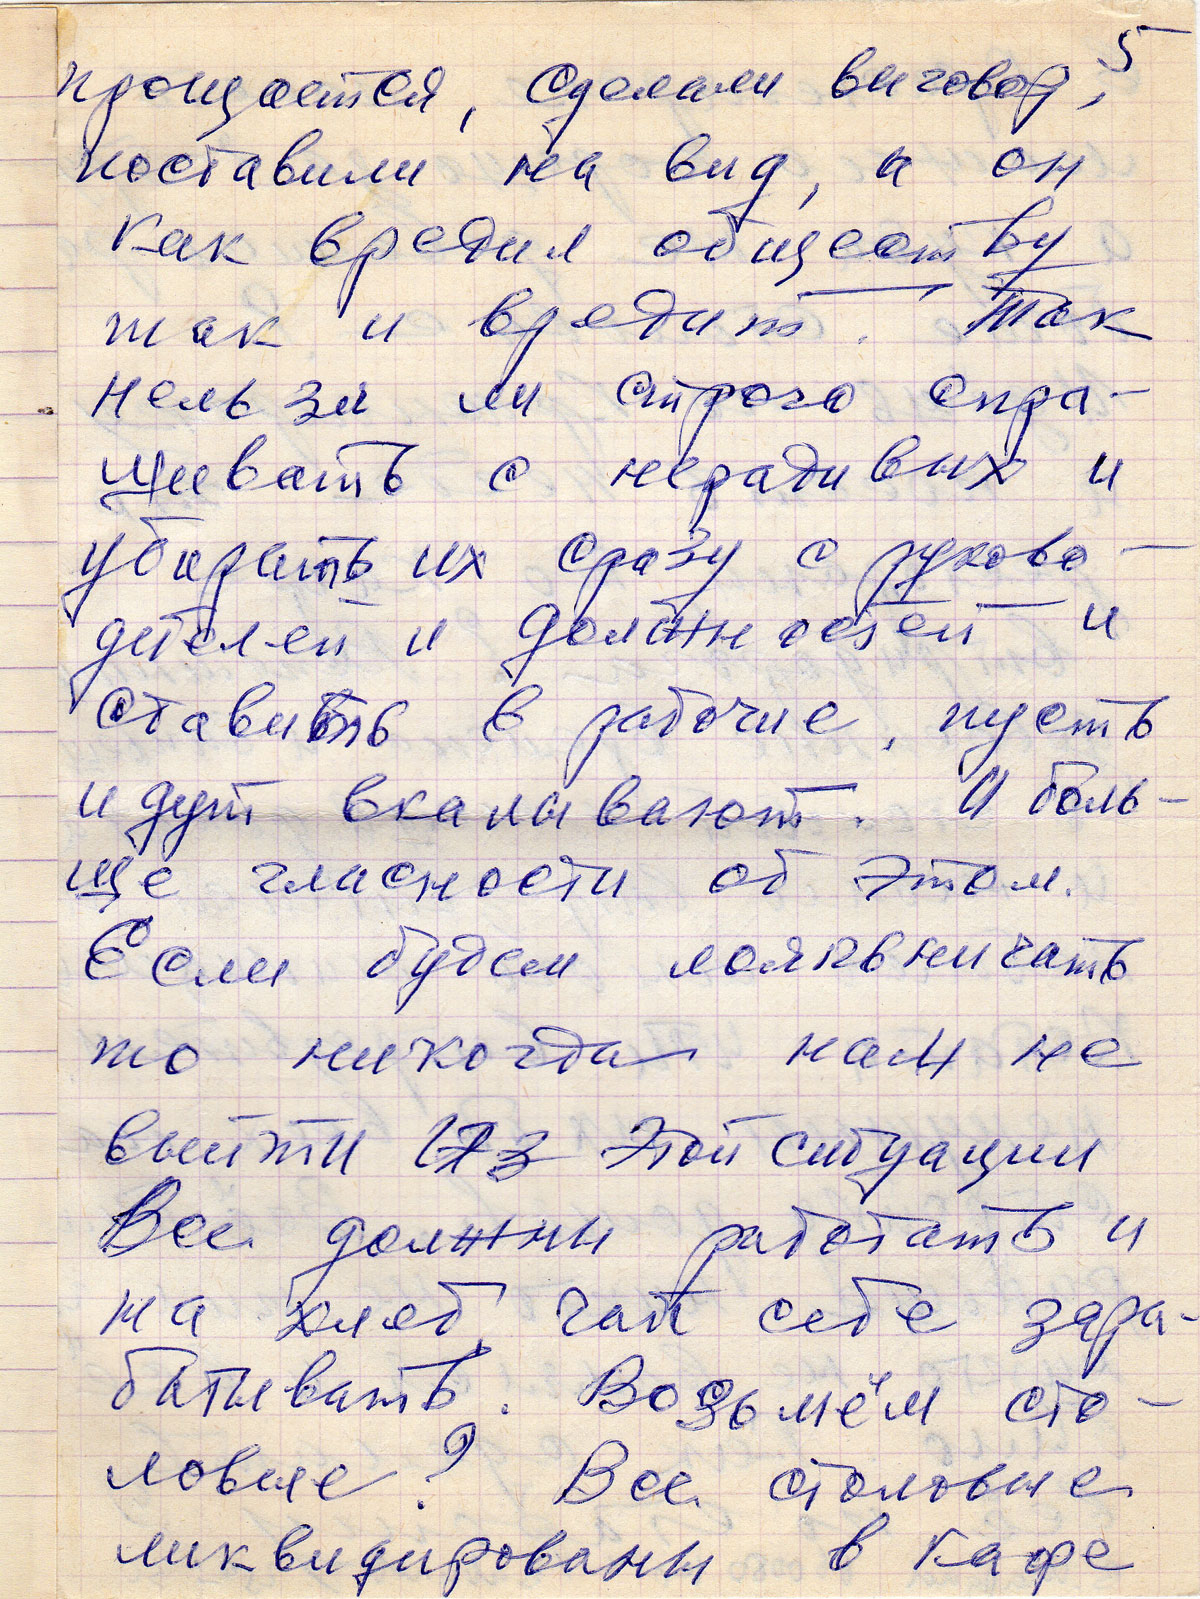 5
прощается, сделали выговор,
поставили на вид, а он
как вредил обществу
так и вредит. Так
нельзя ли строго спра-
шивать с нерадивых и
убирать их сразу с руково-
дителей и должностей и
ставить в рабочие, пусть
идут вкалывают. И боль-
ше гласности об этом.
Если будем
то никогда нам не
выйти из этой ситуации
Все должны работать и
на хлеб, чай себе зара-
батывать. Возьмём сто-
ловые? Все столовые
ликвидированы в кафе